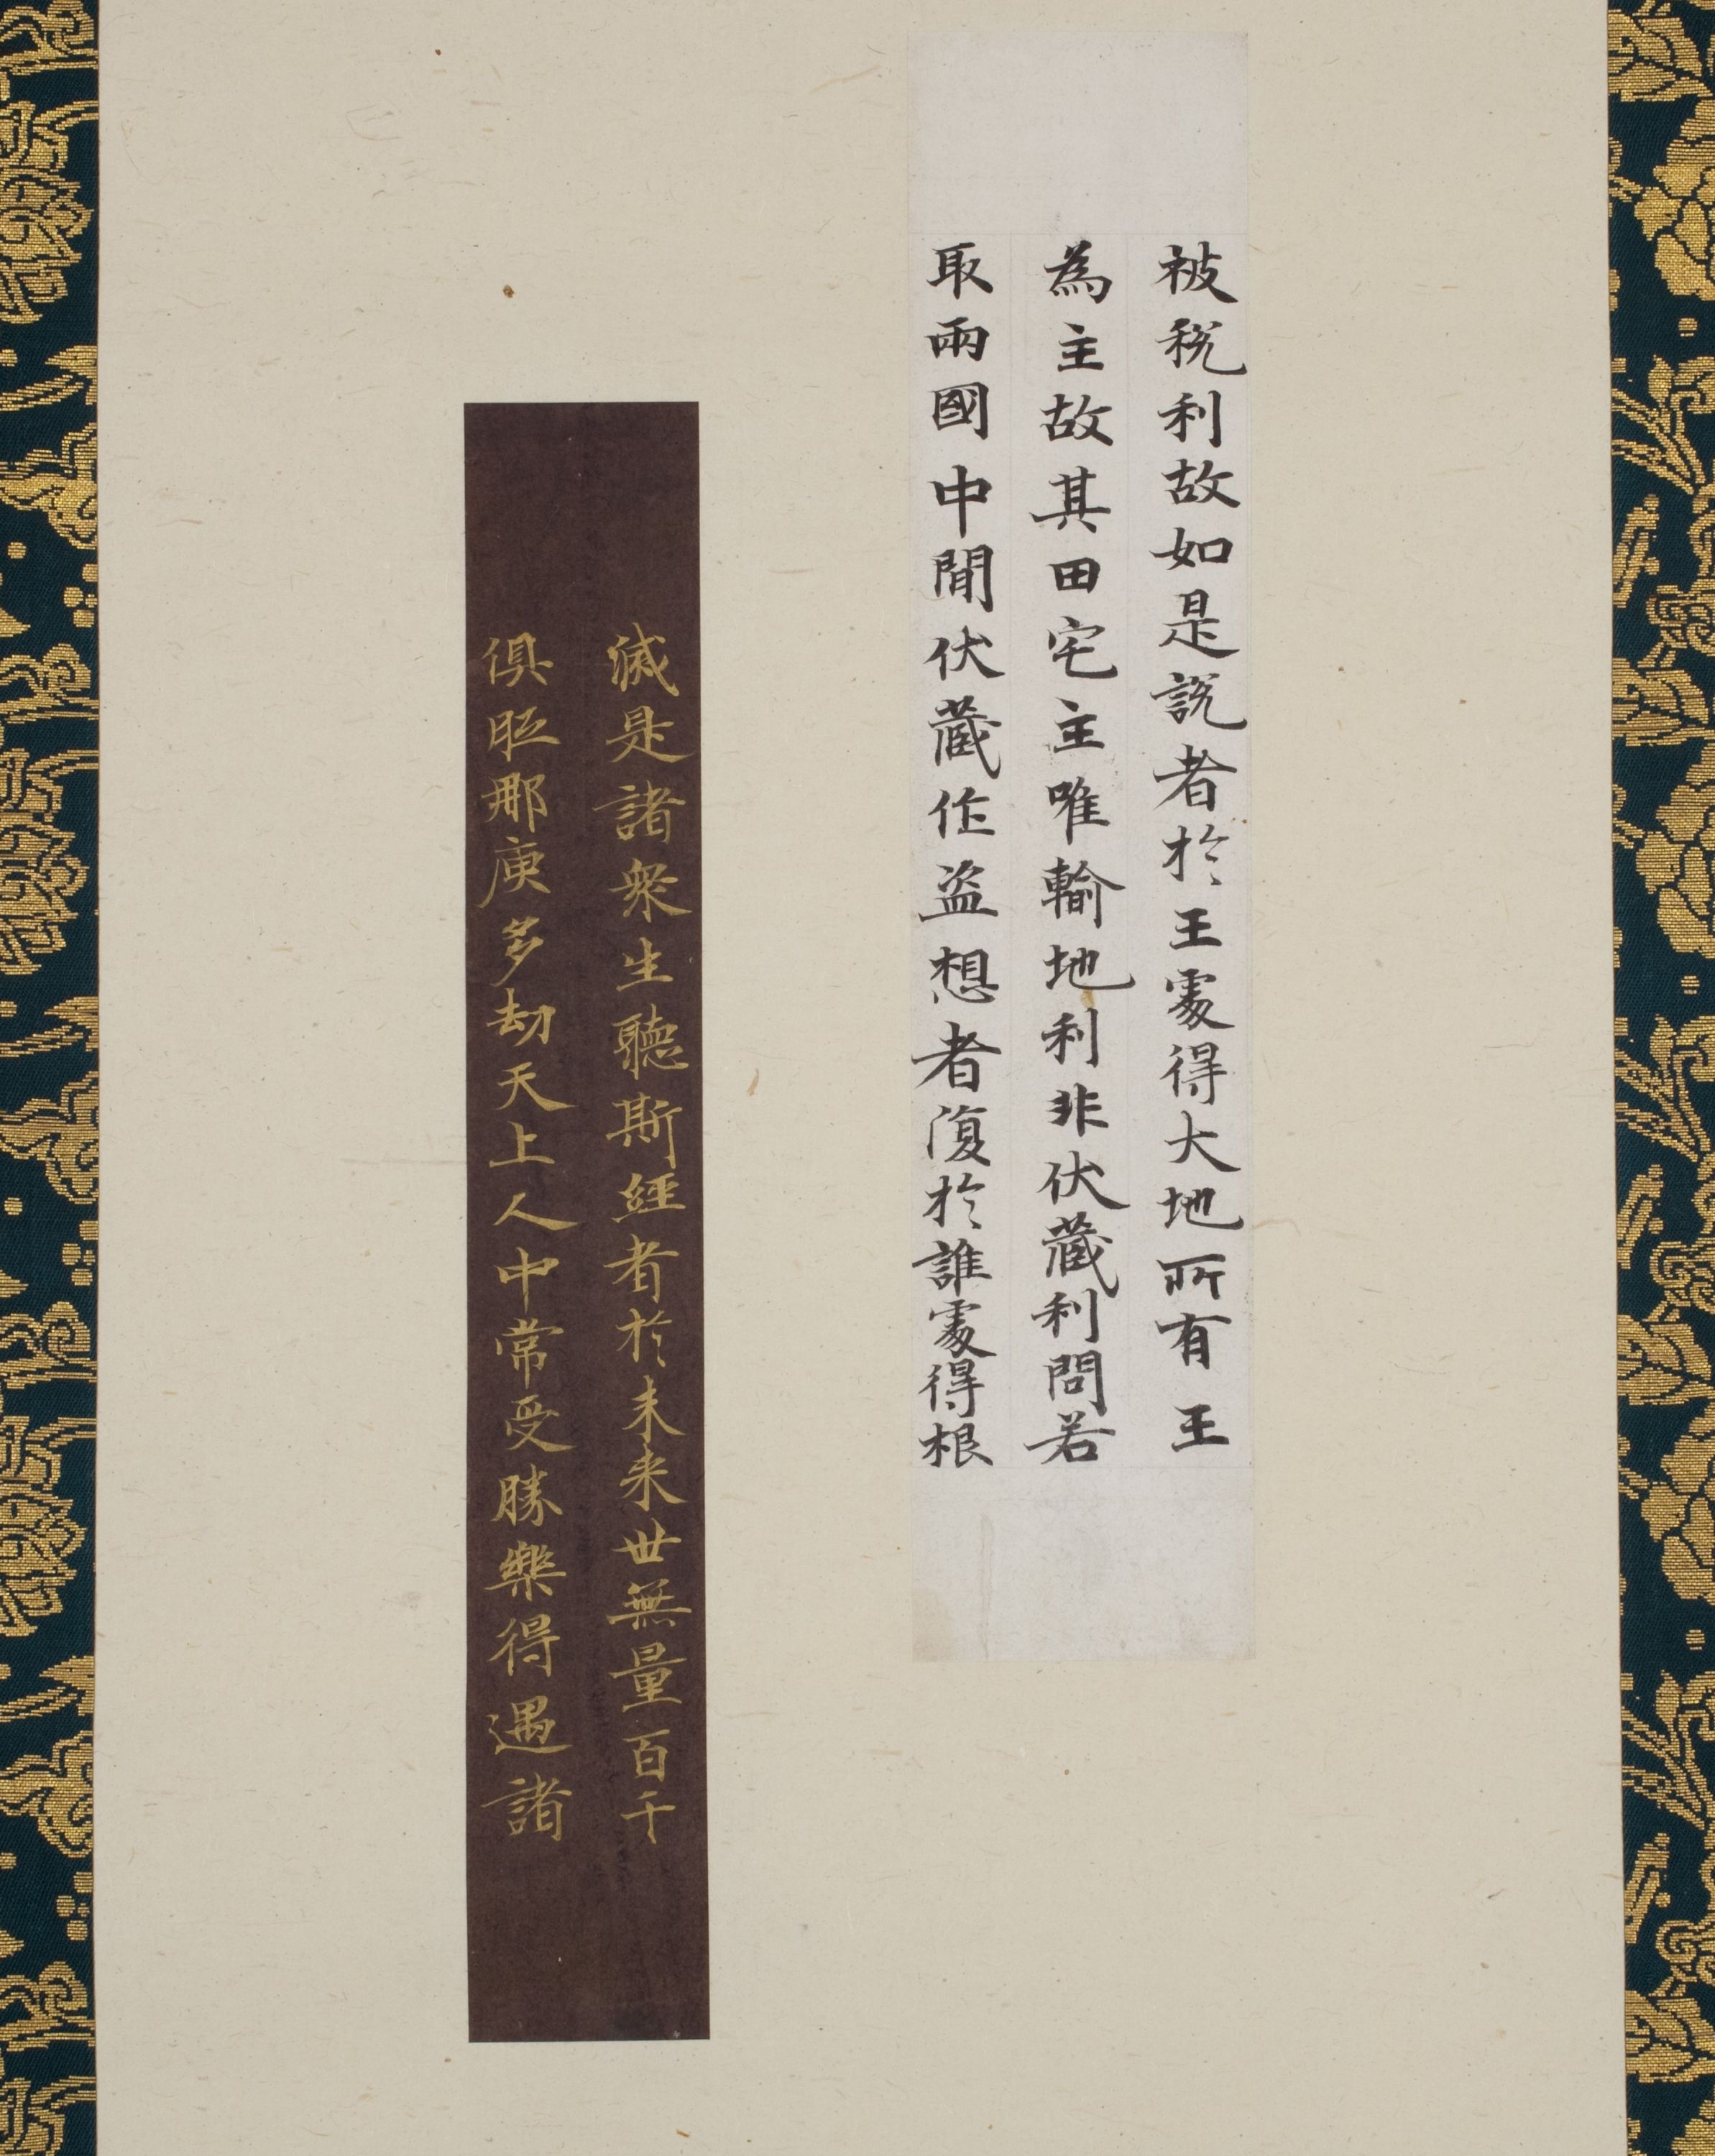 被稅利故如是說者於王處得大地所有王
為主故其田宅主唯輸地利非伏藏利問若
取兩國中間伏藏作盜想者復於誰處得根
滅是諸眾生聽斯經者於未來世無量百千
俱胝那庾多劫天上人中常受勝樂得遇諸